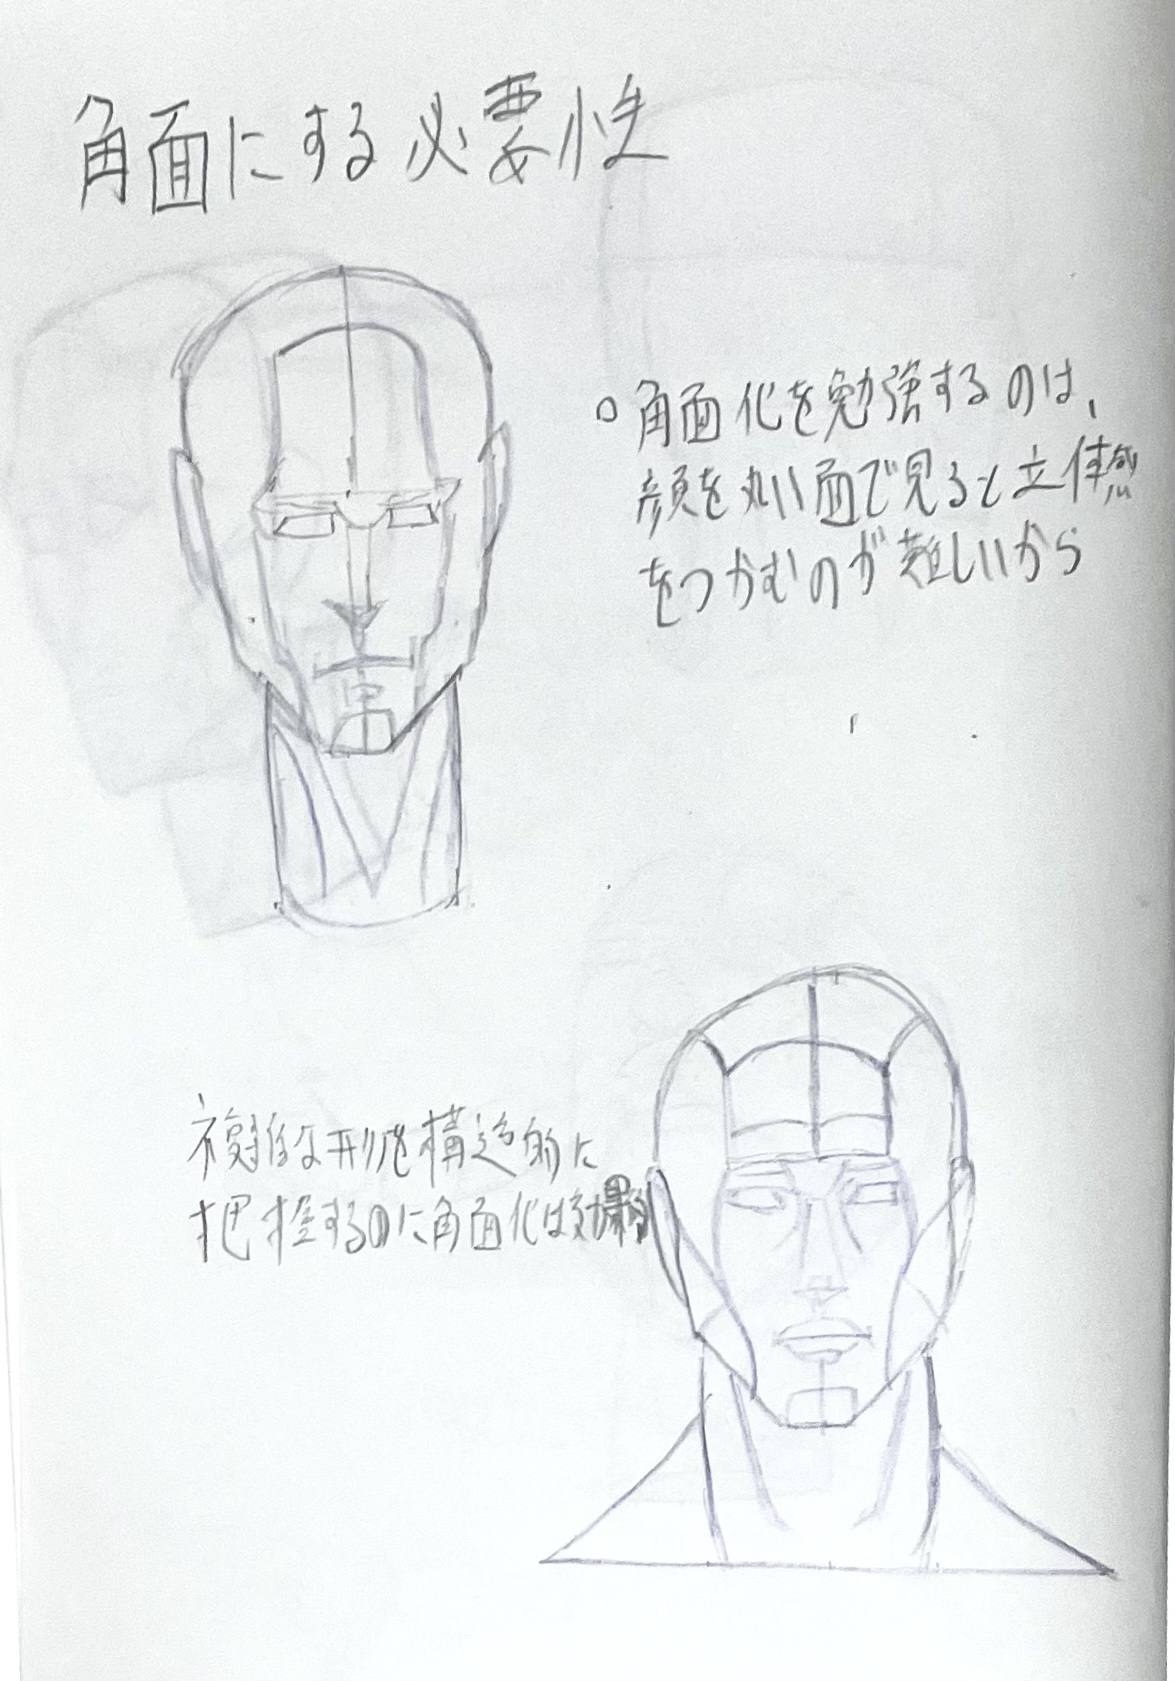 角面にする必要性
○角面化を勉強するのは、
顔を丸い面で見ると立体感
をつかむのが難しいから
複雑な形を構造的に
把握するのに角面化は効果的